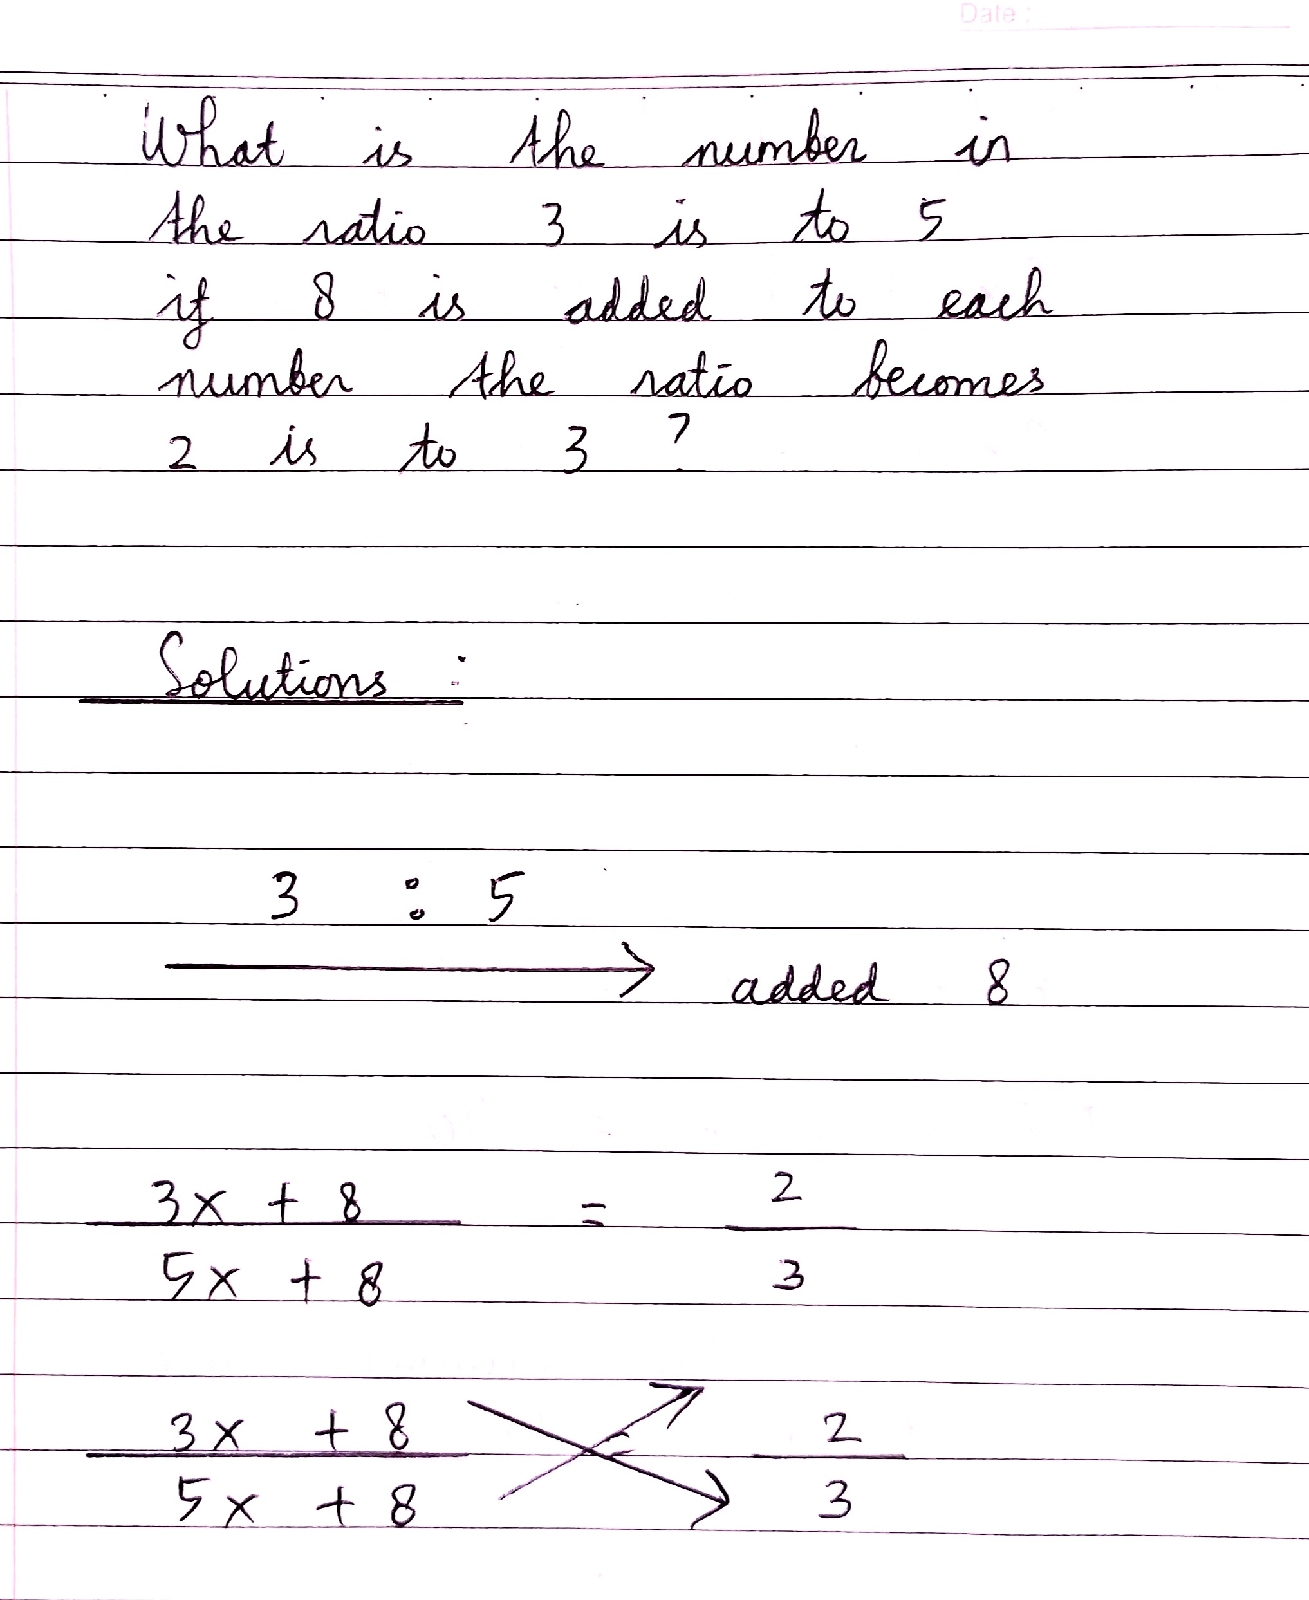 Date :
What is the number in
the ratio 3 is to 5
if 8 is added to each
number the ratio becomes
2 is to 3 ?
Solutions :
3 : 5
added 8
3x + 8 = 2
5x + 8 3
3x + 8 = 2
5x + 8 3